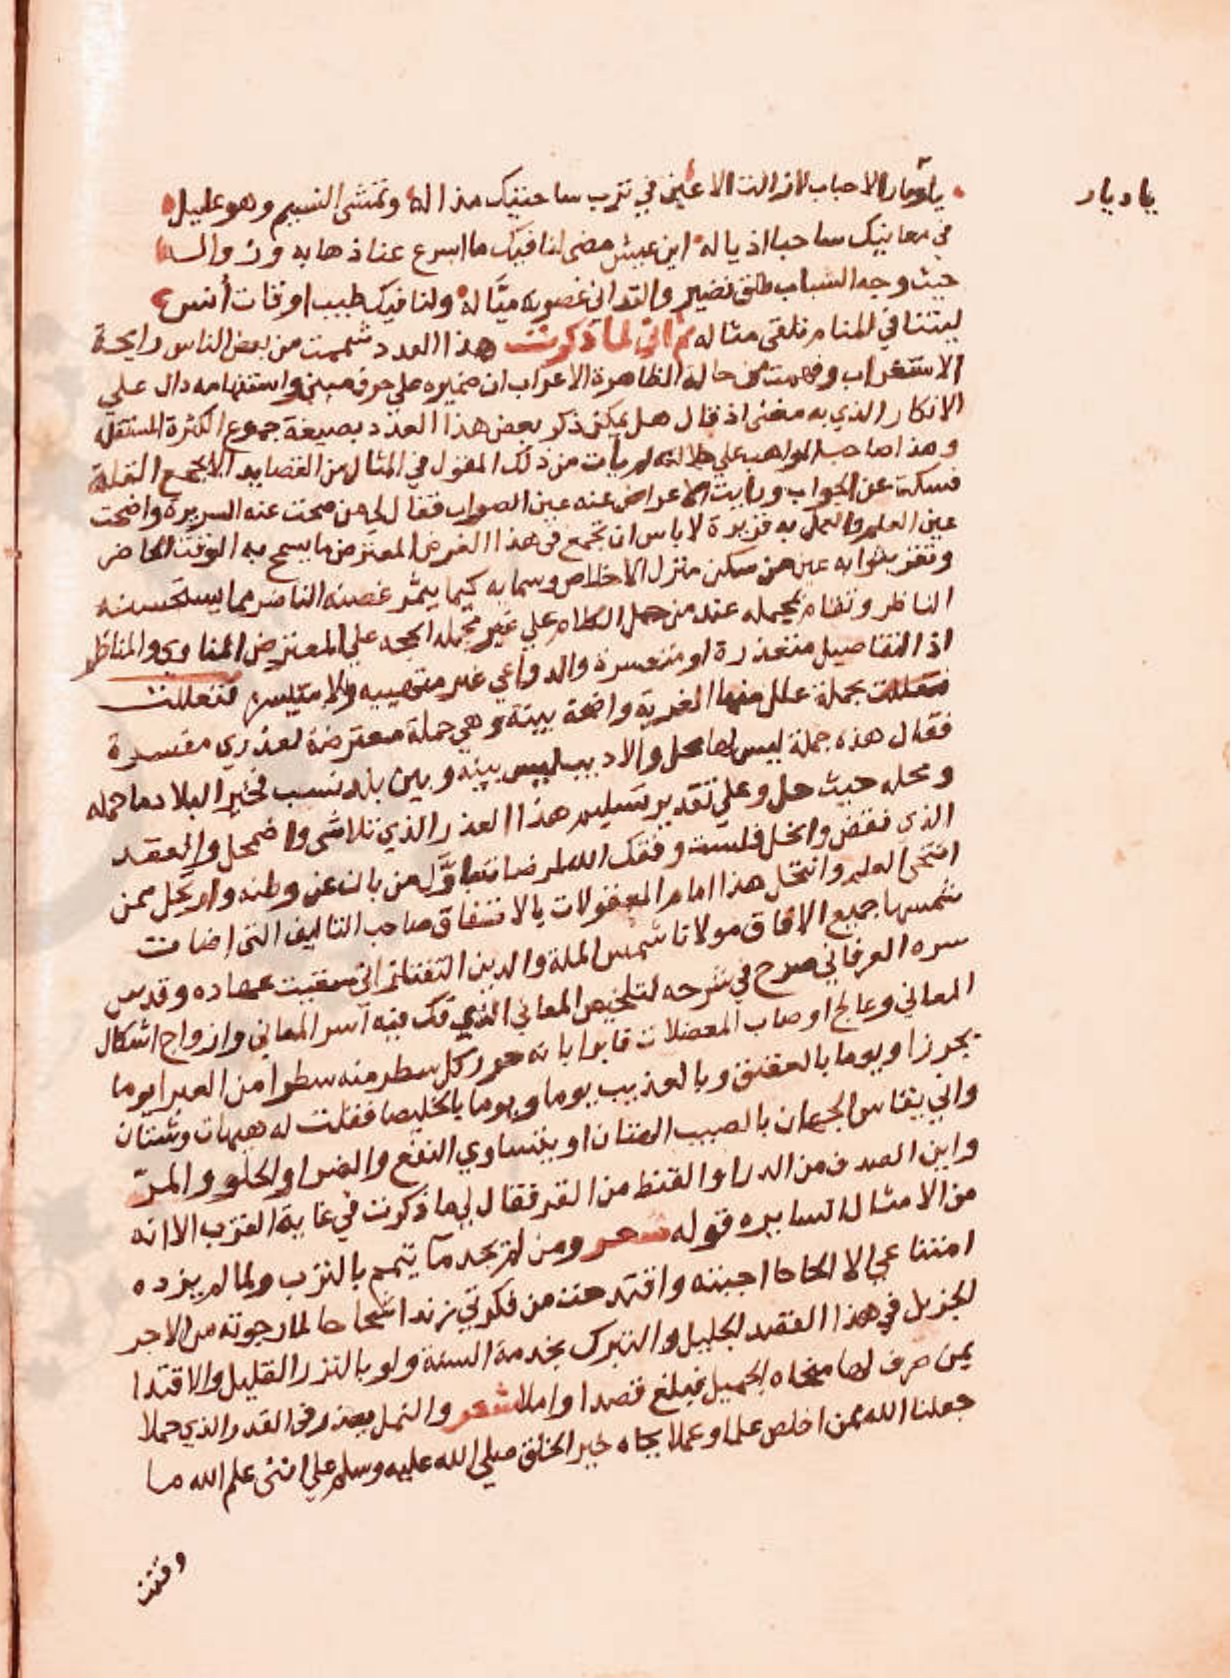 يا ديار
يا ديار الاحباب لا زالت الاعين في ترب ساحتيك مذاله وتمشى النسيم وهو عليل
في مغانيك ساحبا اذياله اين عيش مضى لنا فيك ما اسرع عنا ذهابه وزواله
حيث وجه الشباب طلق نضير والتداني غصونه مياله ولنا فيك طيب اوقات أنس
ليتنا في المنام نلقى مثاله ثم اني لما ذكرت هذا العدد شممت من بعض الناس رايحة
الاستغراب وفهمت من حالة الظاهرة الاعراب ان ضميره على حرف مبني واستفهامه دال علي
الانكار الذي به مغني اذ قال هل يمكن ذكر بعض هذا العدد بصيغة جموع الكثرة المستقلة
وهذا صاحب المواهب علي جلالته لم يأت من ذلك المقول في المثال من القصايد الا بجمع القلة
فسكت عن الجواب ورأيت الاعراض عنه عين الصواب فقال لي من صحت عنه السريرة واضحت
عين العلم والعمل به قريرة لا باس ان تجمع في هذا الغرض المعترض ما يسمح به الوقت الحاضر
وتقر بثوابه عين من سكن منزل الاخلاص وسما به كيما يثمر غصنه الناضر مما يستحسنه
الناظر ونظام يحمله عند من حمل الكلام علي غير محمله الحجه علي المعترض المناوي والمناظر
اذ التفاصيل متعذرة او متعسرة والدواعي غير متهيبه ولا متيسره فتعللت
بجملة علل منها الغربة واضحة بينة وهي جملة معترضة لعذري مفسرة
فقال هذه جملة ليس لها محل والاديب ليس بينه وبين بلد نسب فخير البلاد ما حمله
ومحله حيث حل وعلي تقدير تسليم هذا العذر الذي تلاشى واضمحل والعقد
الذي نقض وانحل فلست وفقك الله لمرضاته باول من بان عن وطنه وارتحل ممن
انتحى العلم وانتحل هذا امام المعقولات بالاتفاق صاحب التاليف التي اضات
شمسها جميع الافاق مولانا شمس الملة والدين التفتازاني سقيت عهاده وقدس
سره العرفاني صرح في شرحه لتلخيص المعاني الذي فك فيه آسر المعاني وازواج اشكال
المعاني وعالج اوصاب المعضلات قايلا بانه حرر كل سطر منه سطرا من الغبرا يوما
بجرزا ويوما بالعقيق وبالعذيب يوما ويوما بالخليصا فقلت له هيهات وشتان
واني يقاس الجهان بالصيب الهتان او يتساوي النفع والضر او الحلو والمر
واين الصدف من الدر او القنط من القر فقال لي ما ذكرت في غاية القرب الا انه
من الامثال السايره قوله شعر ومن لم يجد مآ يتيمم بالترب ولما لم يزده
امتناعي الا الحاحا اجبته واقتدحت من فكرتي زندا شحاحا لما رجوته من الاجر
الجزيل في هذا القصد الجليل والتبرك بخدمة السنة ولو بالنزر القليل والاقتدا
بمن صرف لها منحاه الجميل فبلغ قصدا واملا شعر والنمل يعذر في القدر الذي حملا
جعلنا الله ممن اخلص علما وعملا بجاه خير الخلق صلي الله عليه وسلم علي انني علم الله ما
وقفت